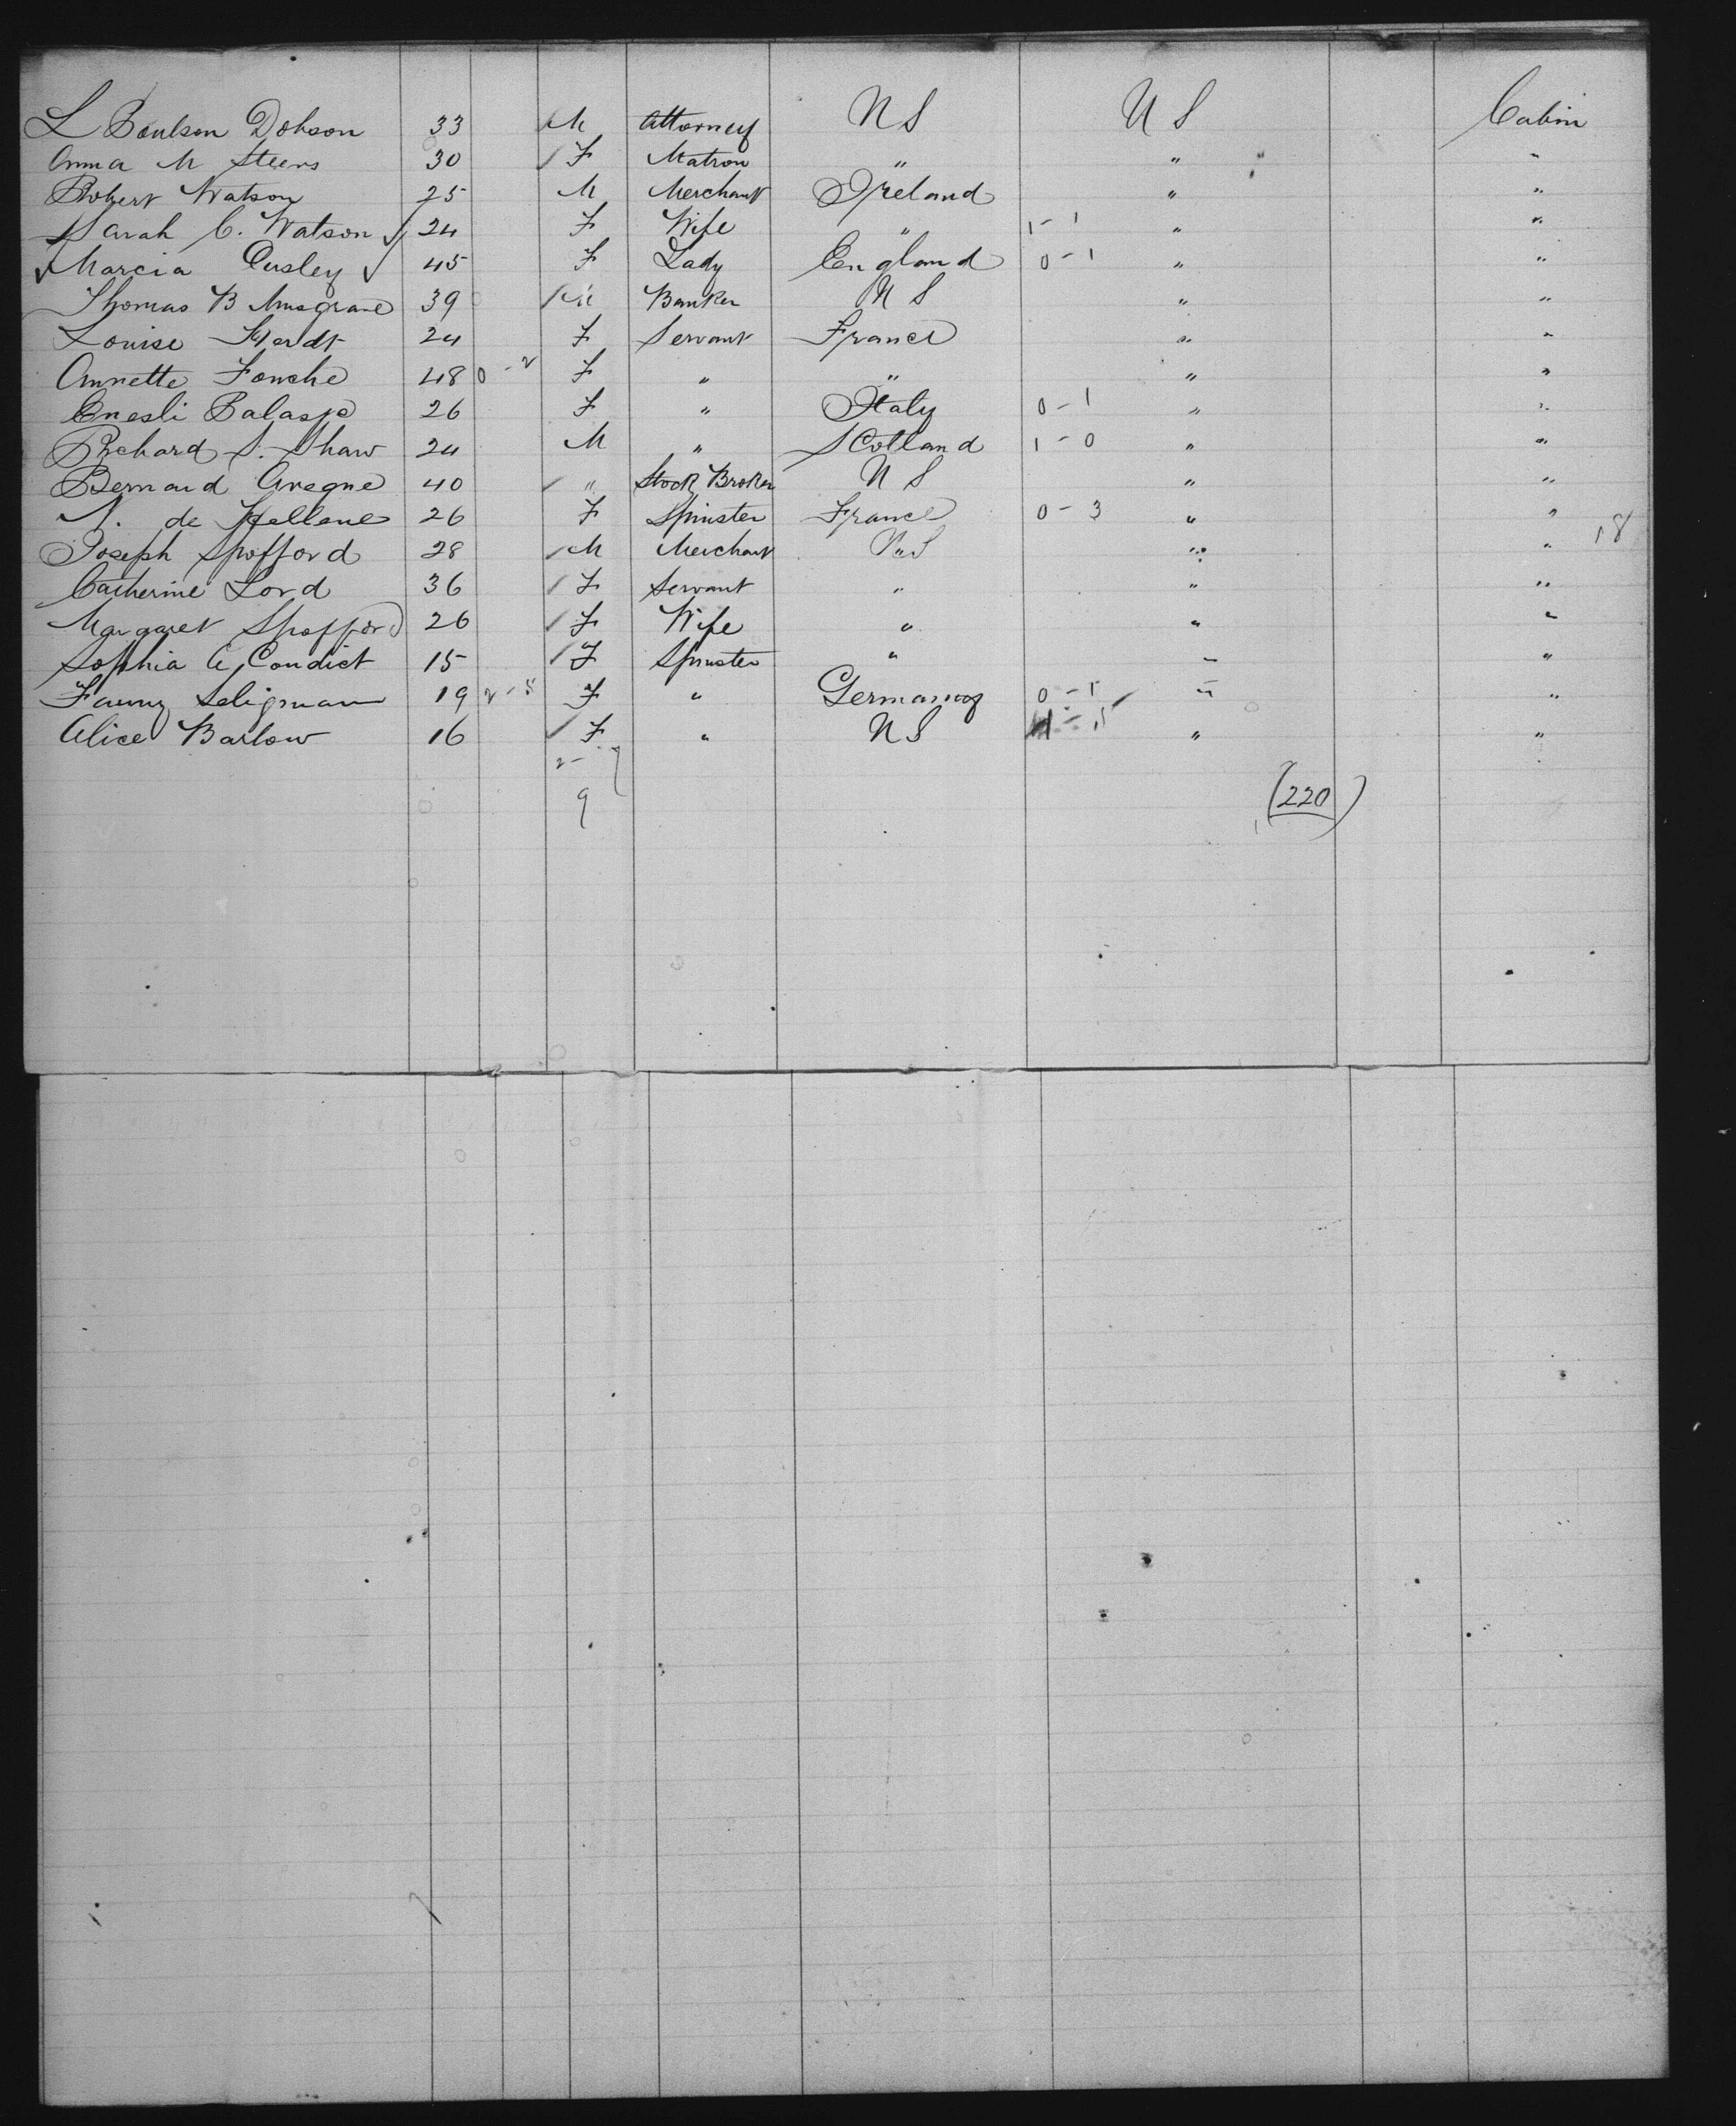 L Poulson Dobson 33 M Attorney U S U S Cabin
Anna M Steers 30 / F Matron " " "
Robert Watson 25 M Merchant Ireland " "
Sarah C. Watson 24 F Wife " 1-1 " "
Marcia Cusley 45 F Lady England 0-1 " "
Thomas B Musgrave 39 / M Banker U S " "
Louise 24 F Servant France " "
Annette Fouche 48 0-2 F " " " "
26 F " Italy 0-1 " "
Richard S. Shaw 24 M " Scotland 1-0 " "
Bernard 40 / " Stock Broker U S " "
N. de 26 F Spinster France 0-3 " "
Joseph Spofford 28 / M Merchant U S " " 18
Catherine Lord 36 / F Servant " " "
Margaret Spofford 26 / F Wife " " "
Sophia A Condict 15 / F Spinster " " "
Fanny Seligman 19 2-5 F " Germany 0-1 " "
Alice Barlow 16 / F " U S " "
2-7
9 (220)